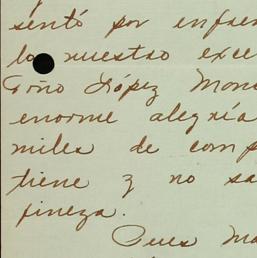 sentó por enfer
lo nuestro exce
Toño López Mon
enorme alegría
miles de comp
tiene y no sa
fineza.
Pues Ma